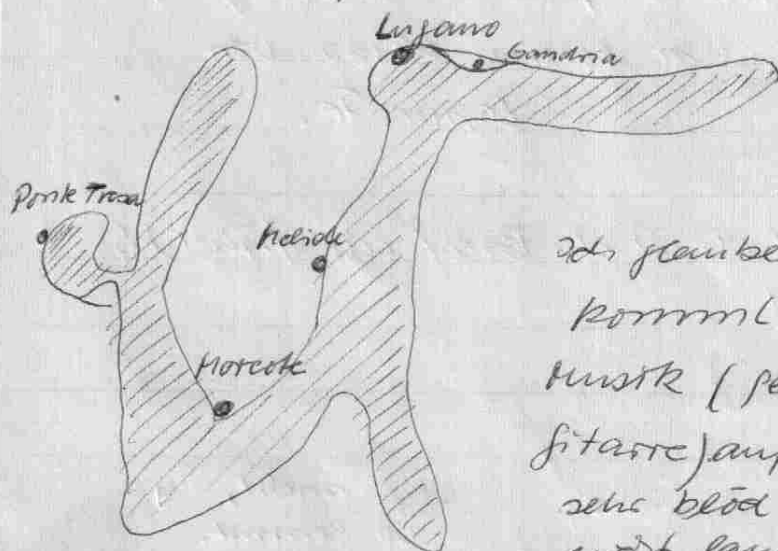 Lugano
Gandria
Ponte Tresa
Melide
Morcote
Ich glaube
kommt
Musik (ge
Gitarre) auf
sehr blöd